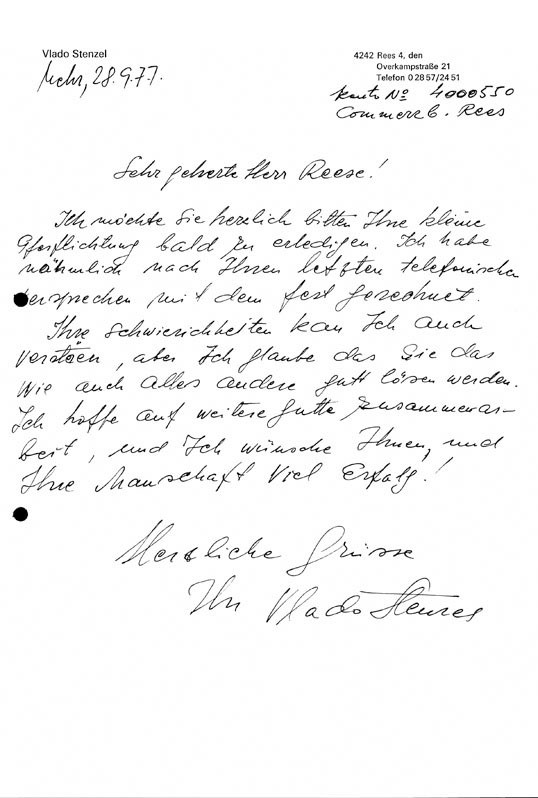 Vlado Stenzel
4242 Rees 4, den
Overkampstraße 21
Telefon 0 28 57/24 51
Mehr, 28.9.77.
Konto No 4000550
Commerz b. Rees
Sehr geherte Herr Reese!
Ich möchte Sie herzlich bitten Ihre kleine
Pferflichtung bald zu erledigen. Ich habe
nähmlich nach Ihren letzten telefonischen
versprechen mit dem fest gerechnet.
Ihre Schwierichkeiten kan Ich auch
verstäen, aber Ich glaube das Sie das
wie auch alles andere gutt lösen werden.
Ich hoffe auf weitere gutte zusammenar-
beit, und Ich wünsche Ihnen, und
Ihre Manschaft Viel Erfolg!
Herzliche Grüsse
Ihr Vlado Stenzel